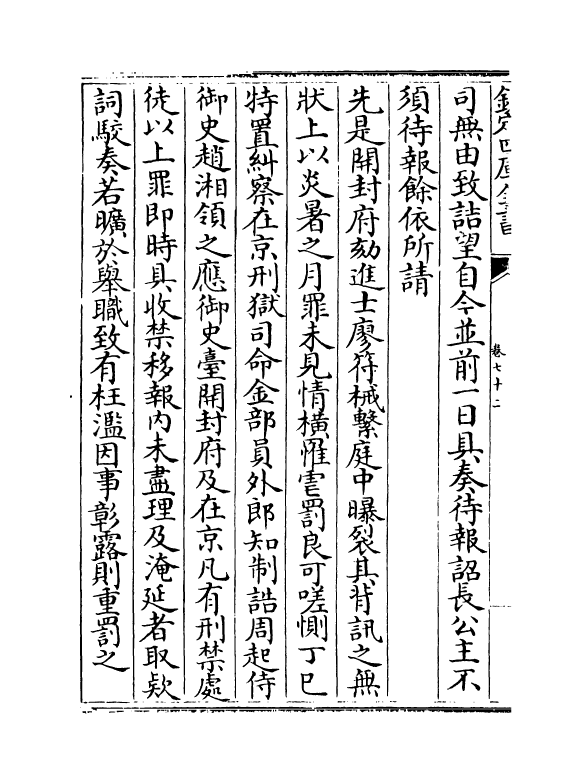 欽定四庫全書
卷七十二
司無由致詰望自今並前一日具奏待報詔長公主不
須待報餘依所請
先是開封府劾進士廖符械繫庭中曝裂其背訊之無
狀上以炎暑之月罪未見情橫罹虐罰良可嗟惻丁巳
特置糾察在京刑獄司命金部員外郎知制誥周起侍
御史趙湘領之應御史臺開封府及在京凡有刑禁處
徒以上罪即時具收禁移報內未盡理及淹延者取欵
詞駮奏若曠於舉職致有枉濫因事彰露則重罰之